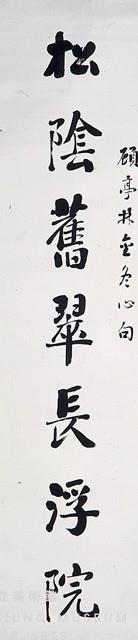 松陰舊翠長浮院
顧亭林金冬心句